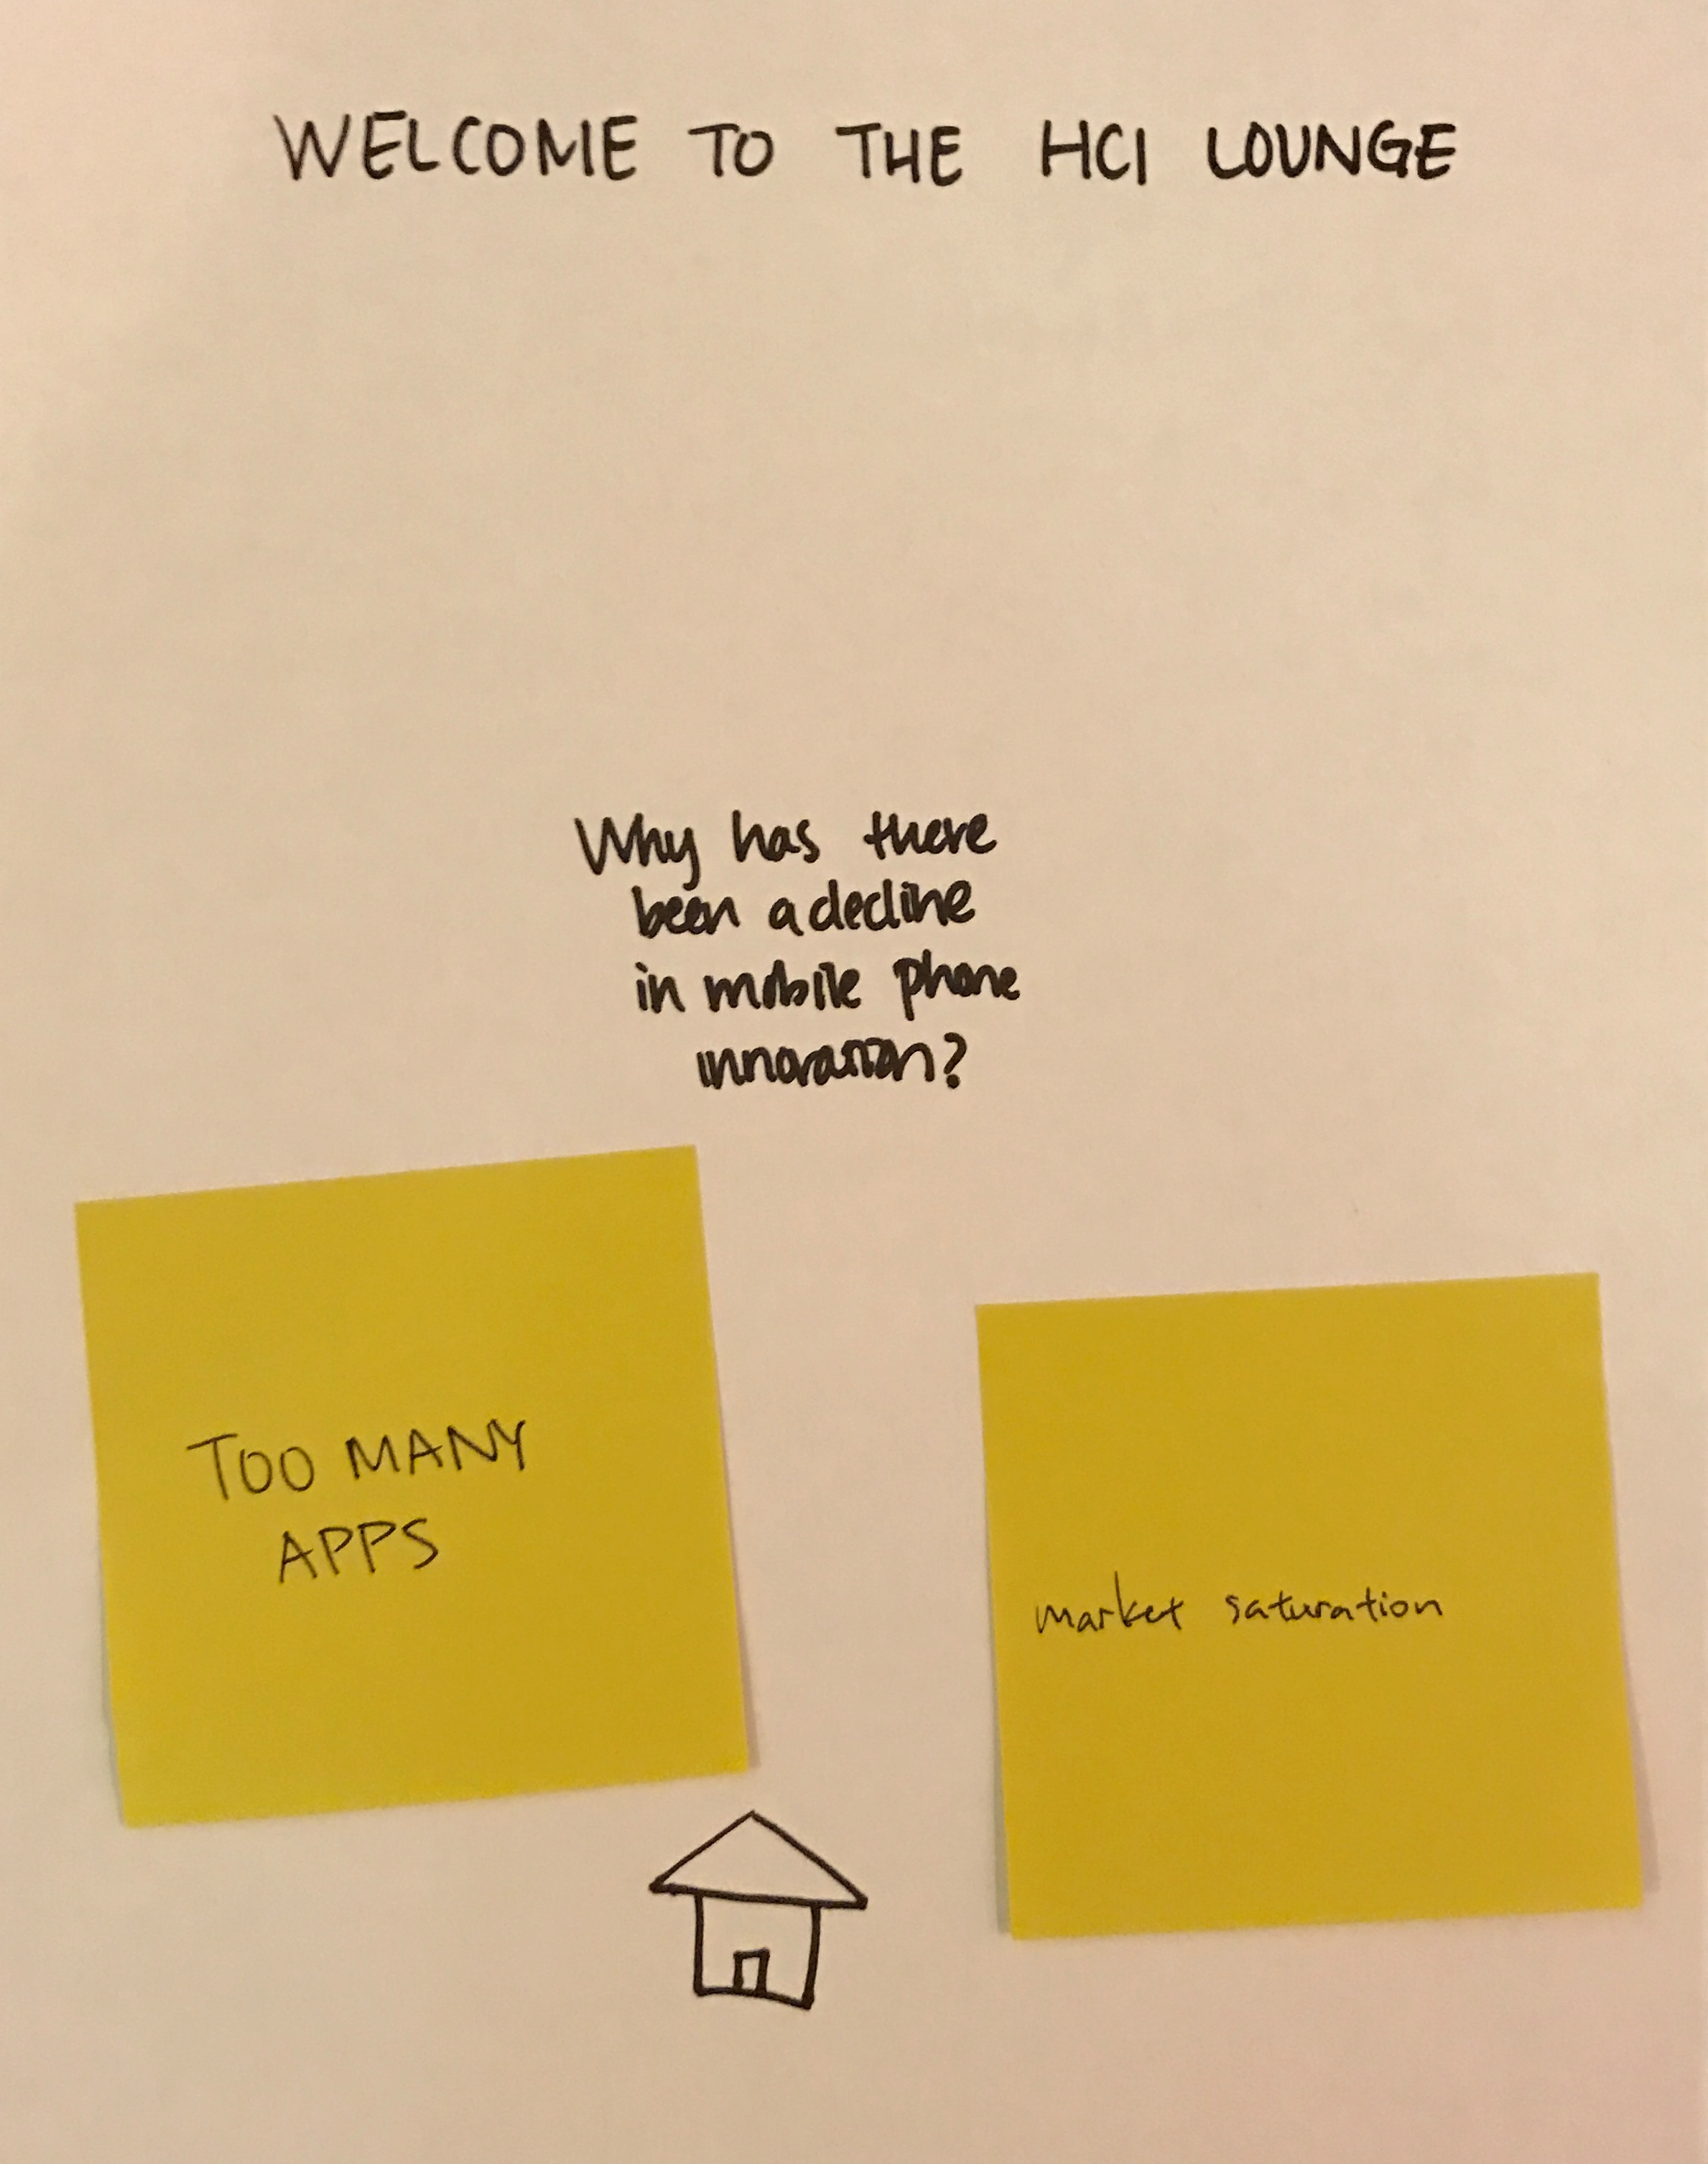 WELCOME TO THE HCI LOUNGE
Why has there
been a decline
in mobile phone
innovation?
TOO MANY
APPS
market saturation